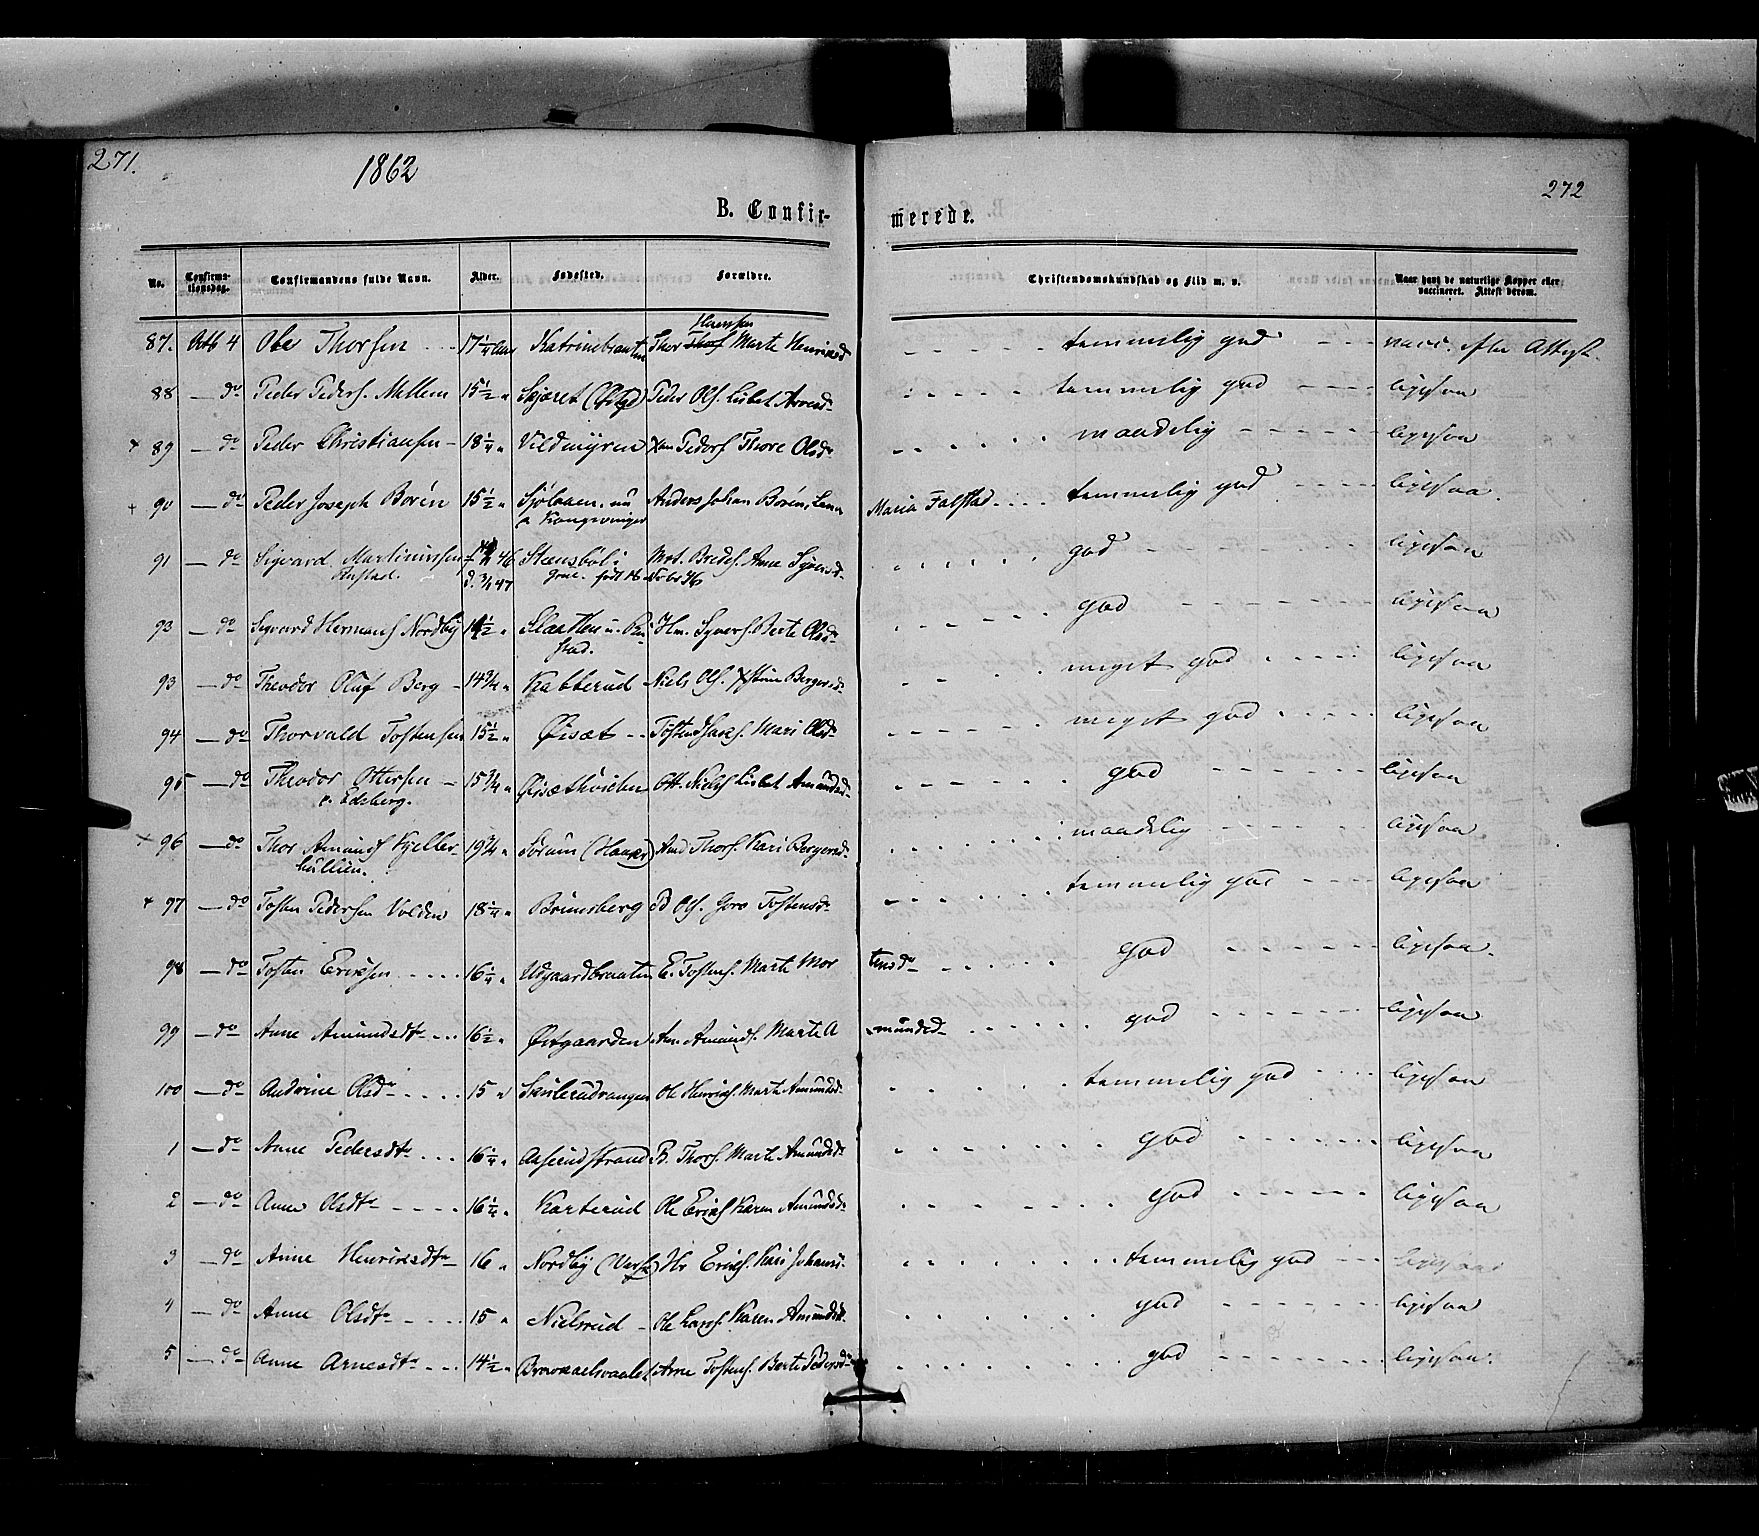 271.
1862
272
B. Confir-
merede.
No. Confirma-tionsdag. Confirmandens fulde Navn. Alder. Fødested. Forældre. Christendomskundskab og Flid m. v. Naar havt de naturlige Kopper eller vaccineret. Attest derom.
87. Octb 4 Ole Thorsen 17 1/4 Aar Katrinebraaten Thor Hansen Marte Henriksd temmelig god vacc. efter Attest.
88 — do Peder Peders. Mellem 15 1/2 " Skjæret Peder Ols. Lisbet temmelig god ligesaa
+ 89 — do Peder Christiansen 18 1/4 " Vildmyren Peders Thore Olsd maadelig ligesaa
+ 90 — do Peder Joseph Borén 15 1/2 " nu a Kongsvinger Anders Johan Borén, Lena Maria Falstad temmelig god ligesaa.
91 — do Sigvard Martiniussen Stensbøl Mrt. Bredes. Anne Syversd god ligesaa
93 — do Sigvard Hermans Nordby 14 1/2 " Hm. Syvers. Berte Olsd god ligesaa
93 — do Theodor Oluf Berg 14 3/4 " Kabberud Niels Ols. Bergersd meget god ligesaa
94 — do Thorvald Tostensen 15 1/2 " Øisæt Tosten Mari Olsd meget god ligesaa
95 — do Theodor Ottersen 15 3/4 " Ott. Niels Lisbet Amundsd god ligesaa
e. Edsberg.
+ 96 — do Thor Amunds Kjeller- 19 3/4 " Sørum Amd Thors Kari Bergersd maadelig ligesaa
+ 97 — do Tosten Pedersen Volden 18 1/4 " Brunsberg Pd Ols. Goro Tostensd temmelig god ligesaa
98 — do Tosten Eriksen 16 1/4 " Udgaardbraaten E. Tostens. Marte Mor tensd god ligesaa.
99 — do Anne Amundsdtr 16 1/2 " Østgaarden Am. Amunds. Marte A mundsd god ligesaa
100 — do Andrine Olsd 15 " Skulerudvangen Ole Henriks. Marte Amundsd temmelig god ligesaa
1 — do Anne Pedersdtr 16 1/4 " Aaserudstrand P. Thors. Marte Amundsd god ligesaa
2 — do Anne Olsdtr 16 1/4 " Karterud Ole Eriks Karen Amundsd god ligesaa
3 — do Anne Henriksdtr 16 " Nordby Hr Eriks. Kari Johans. temmelig god ligesaa
4 — do Anne Olsdtr 15 " Nielsrud Ole Lars. Karen Amundsd god ligesaa
5 — do Anne Arnesdtr 14 1/2 " Arne Tostens. Berte Pedersd god ligesaa.